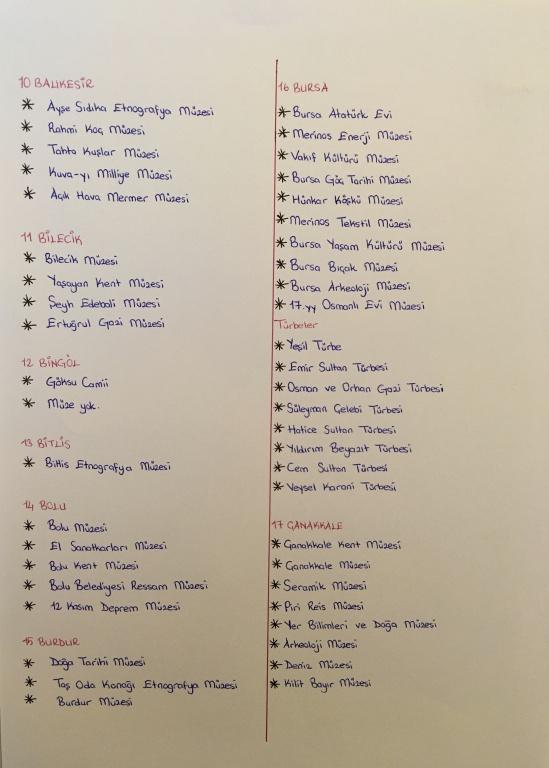 10 BALIKESİR
Ayşe Sıdıka Etnografya Müzesi
Rahmi Koç Müzesi
Tahta Kuşlar Müzesi
Kuva-yı Milliye Müzesi
Açık Hava Mermer Müzesi
11 BİLECİK
Bilecik Müzesi
Yaşayan Kent Müzesi
Şeyh Edebali Müzesi
Ertuğrul Gazi Müzesi
12 BİNGÖL
Göksu Camii
Müze yok.
13 BİTLİS
Bitlis Etnografya Müzesi
14 BOLU
Bolu Müzesi
El Sanatkarları Müzesi
Bolu Kent Müzesi
Bolu Belediyesi Ressam Müzesi
12 Kasım Deprem Müzesi
15 BURDUR
Doğa Tarihi Müzesi
Taş Oda Konağı Etnografya Müzesi
Burdur Müzesi
16 BURSA
Bursa Atatürk Evi
Merinos Enerji Müzesi
Vakıf Kültürü Müzesi
Bursa Göç Tarihi Müzesi
Hünkar Köşkü Müzesi
Merinos Tekstil Müzesi
Bursa Yaşam Kültürü Müzesi
Bursa Bıçak Müzesi
Bursa Arkeoloji Müzesi
17.yy Osmanlı Evi Müzesi
Türbeler
Yeşil Türbe
Emir Sultan Türbesi
Osman ve Orhan Gazi Türbesi
Süleyman Çelebi Türbesi
Hatice Sultan Türbesi
Yıldırım Beyazıt Türbesi
Cem Sultan Türbesi
Veysel Karani Türbesi
17 ÇANAKKALE
Çanakkale Kent Müzesi
Çanakkale Müzesi
Seramik Müzesi
Piri Reis Müzesi
Yer Bilimleri ve Doğa Müzesi
Arkeoloji Müzesi
Deniz Müzesi
Kilit Bayır Müzesi